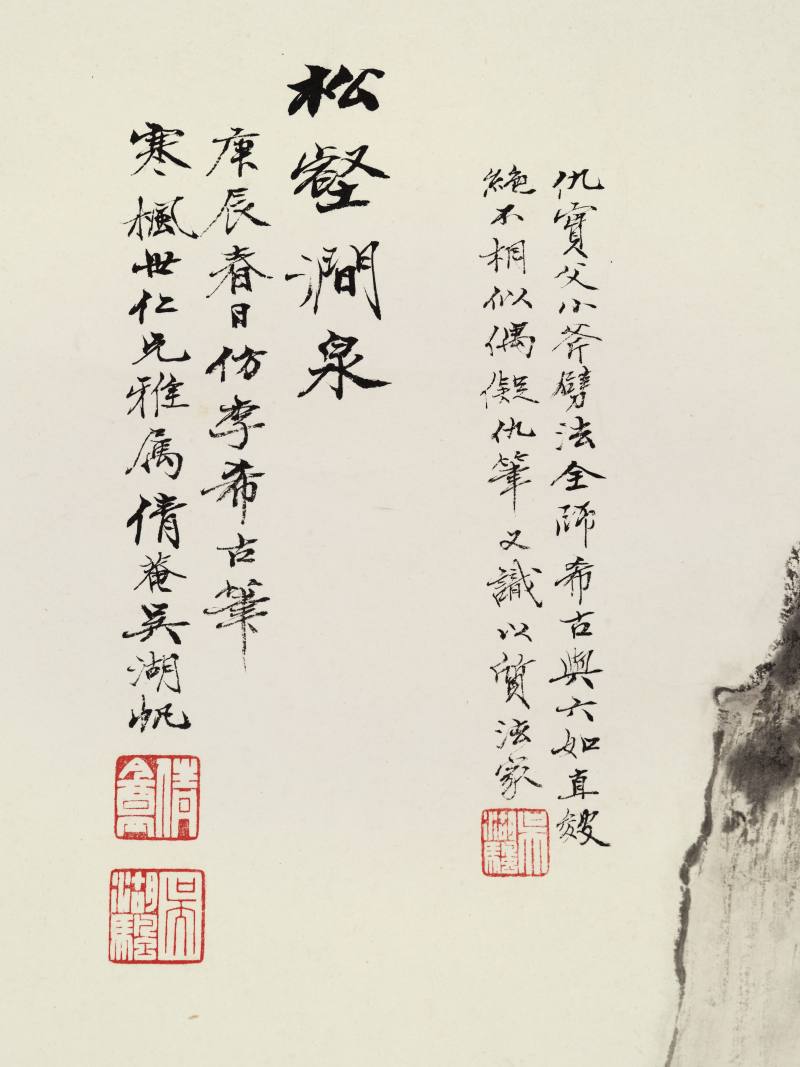 仇實父小斧劈法全師希古與六如直皴
絶不相似偶儗仇筆又識以質法家
吳湖颿
松壑澗泉
庚辰春日仿李希古筆
寒楓世仁兄雅属倩菴吳湖帆
倩盦
吳湖颿